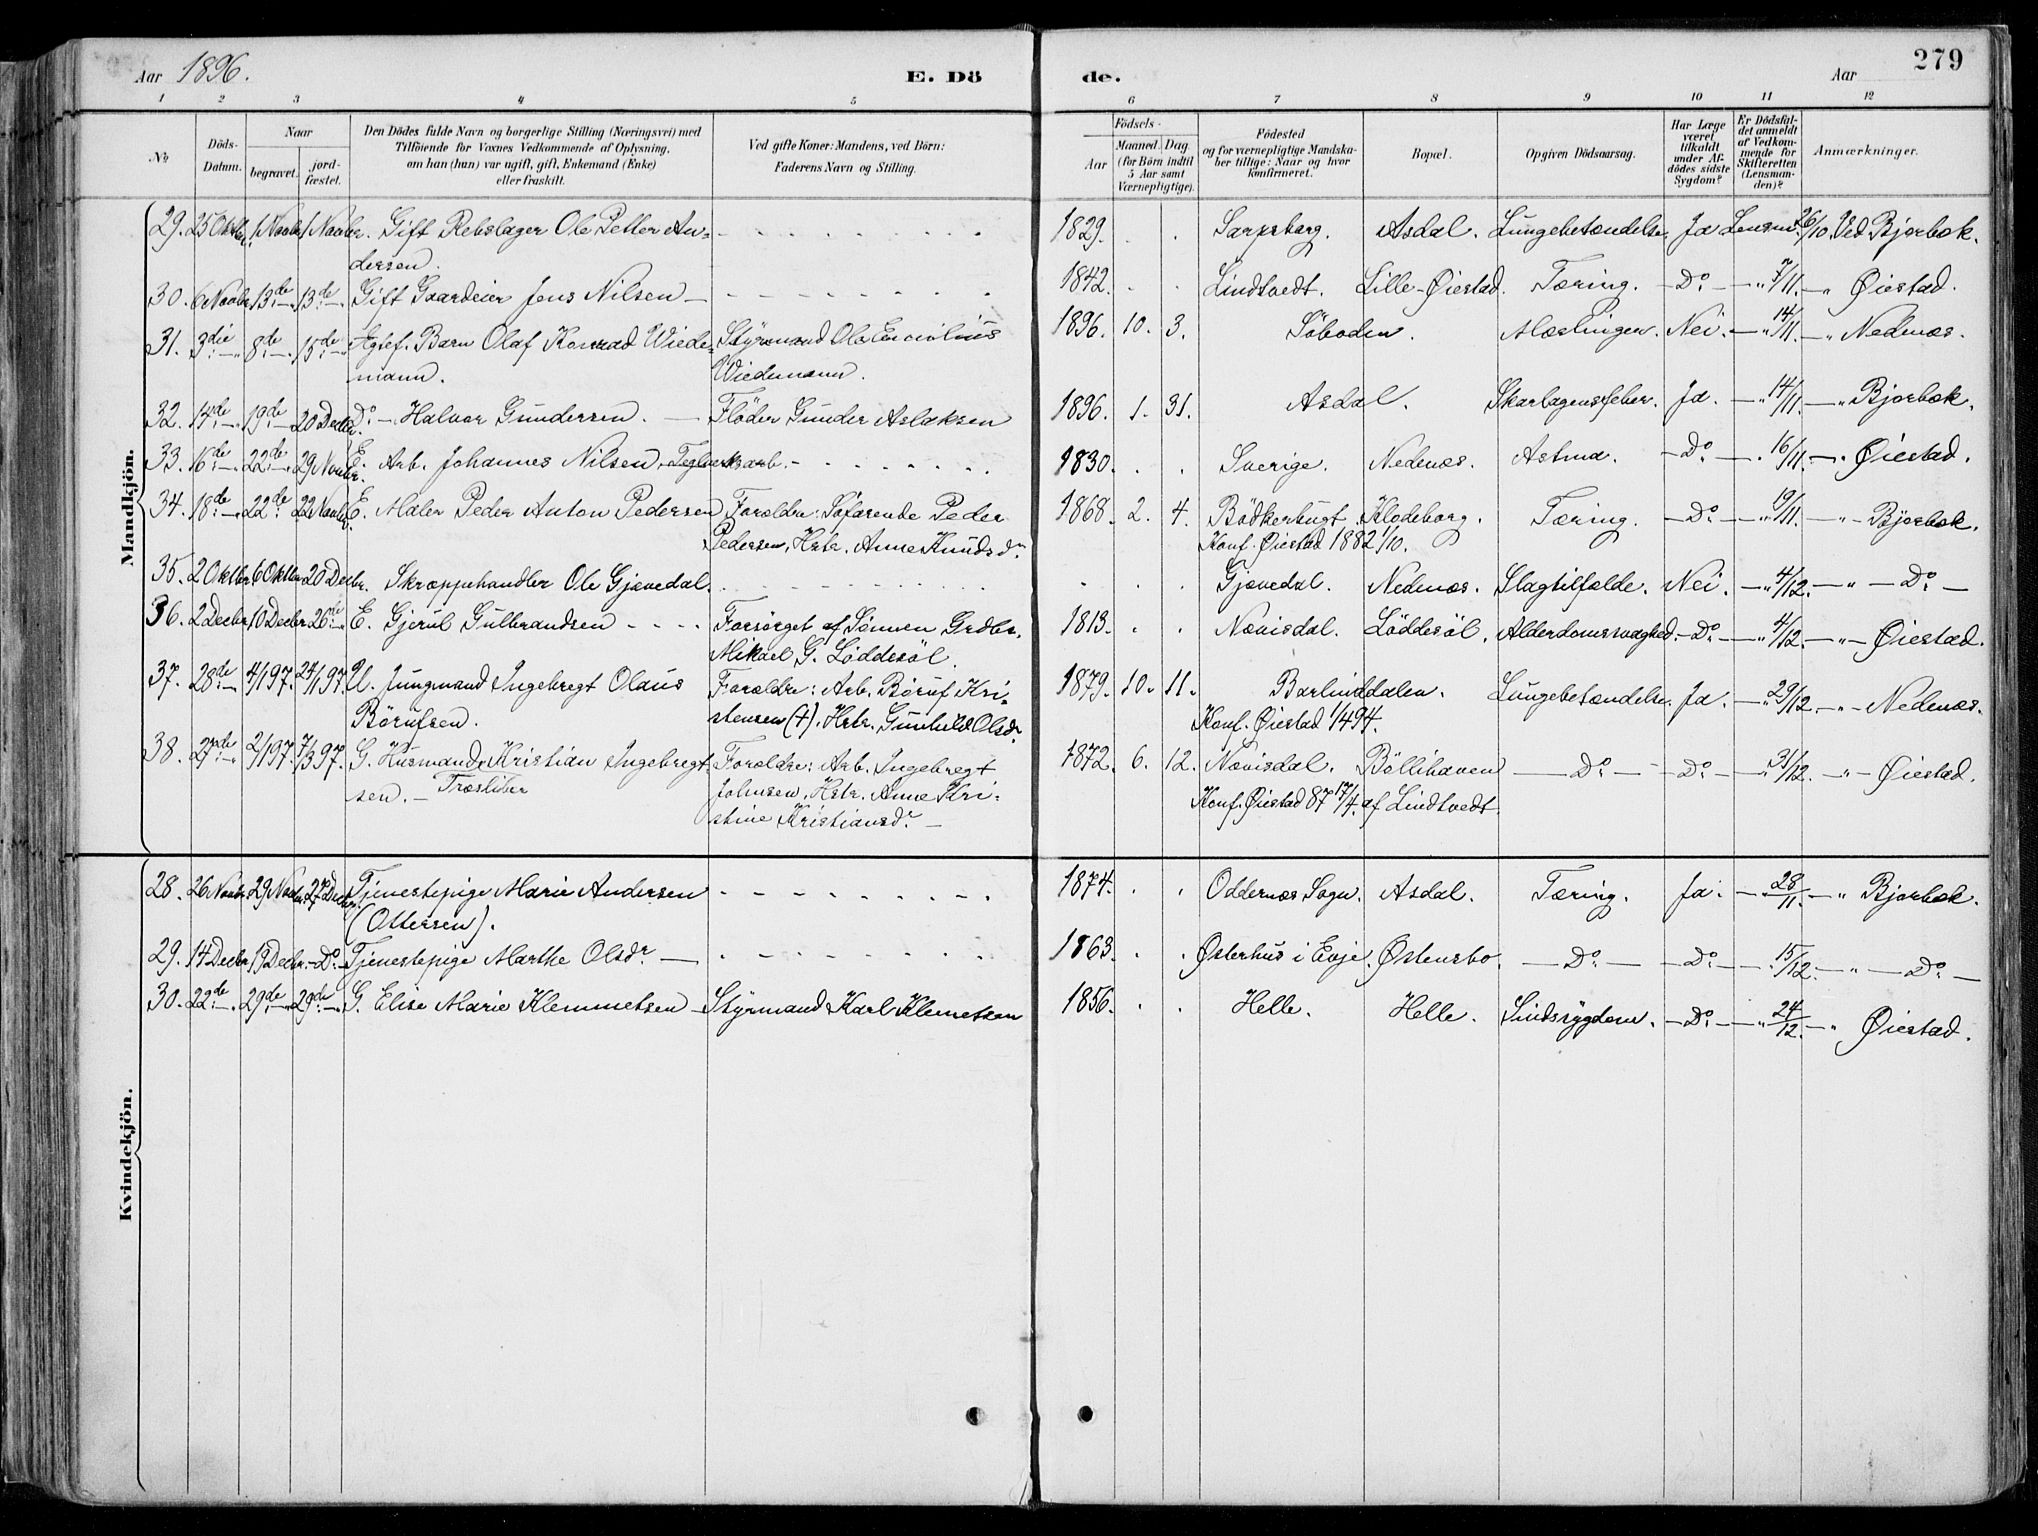 Aar 1896. E. Dö de. Aar 279
1 2 3 4 5 6 7 8 9 10 11 12
No
Döds-Datum.
Naar
begravet.
jord-fæstet.
Den Dödes fulde Navn og borgerlige Stilling (Næringsvei) med
Tilföiende for Voxnes Vedkommende af Oplysning,
om han (hun) var ugift, gift, Enkemand (Enke)
eller fraskilt.
Ved gifte Koner: Mandens, ved Börn:
Faderens Navn og Stilling.
Födsels-
Aar
Maaned. (for Børn indtil 5 Aar samt Værnepligtige).
Dag
Födested
og for værnepligtige Mandska-
ber tillige: Naar og hvor
konfirmeret.
Bopæl.
Opgiven Dödsaarsag.
Har Læge
været
tilkaldt
under Af-
dödes sidste
Sygdom?
Er Dödsfal-
det anmeldt
af Vedkom-
mende for
Skifteretten
(Lensman-
den)?
Anmærkninger.
Mandkjön.
29. 25 Oktbr. 1 Novbr. 1 Novbr. Gift Rebslager Ole Petter An- 1829. Sarpsborg. Asdal. Lungebetændelse. Ja Lensm. 26/10. Ved Bjorbæk.
dersen.
30. 6 Novbr. 13de 13de Gift Gaardeier Jens Nilsen 1842. Lindtvedt. Lille-Øiestad. Tæring. Do 7/11. Øiestad.
31. 3die 8de 15de Ægtef. Barn Olaf Konrad Wiede- Styrmand Ole 1896. 10. 3. Søboden. Mæslinger. Nei. 14/11. Nedenæs.
mann. Wiedemann.
32. 14de 19de 20 Decbr. Do Halvor Gundersen. Fløder Gunder Aslaksen 1896. 1. 31. Asdal. Skarlagensfeber. Ja. 14/11. Bjorbæk.
33. 16de 22de 29 Novbr. E. Arb. Johannes Nilsen, Teglverksarb. 1830. Sverige. Nedenæs. Astma. Do 16/11. Øiestad.
34. 18de 22de 22 Novbr. E. Maler Peder Anton Pedersen Forældre: Søfarende Peder 1868. 2. 4. Bødkerbugt. Klodeborg. Tæring. Do 19/11. Bjorbæk.
Pedersen, Hstr. Anne Knudsdr. Konf. Øiestad 1882 1/10.
35. 2 Oktbr 6 Oktbr 20 Decbr. Skræppehandler Ole Gjøvedal. Gjøvedal. Nedenæs. Slagtilfælde. Nei. 4/12. Do
36. 2 Decbr 10 Decbr 26de E. Gjerul Gulbrandsen Forsørget af Sønnen Grdbr. 1813. Nævisdal. Løddesøl. Alderdomssvaghed. Do 4/12. Øiestad.
Mikael G. Løddesøl.
37. 28de 4/1 97. 24/1 97. U. Jungmand Ingebregt Olaus Forældre: Arb. Børuf Kri- 1879. 10. 11. Barlinddalen. Lungebetændelse. Ja. 29/12. Nedenæs.
Børufsen. stensen (†). Hstr. Gunhild Olsdr. Konf. Øiestad 1/4 94.
38. 27de 2/1 97. 7/3 97. G. Husmand, Kristian Ingebregt- Forældre: Arb. Ingebregt 1872. 6. 12. Nævisdal. Bøllihaven Do Do 31/12. Øiestad.
sen. Træsliber Johnsen, Hstr. Anne Kri- Konf. Øiestad 87 17/4. af Lindtvedt.
stine Kristiansdr.
Kvindekjön.
28. 26 Novbr. 29 Novbr. 27 Decbr. Tjenestepige Marie Andersen 1874. Oddernæs Sogn. Asdal. Tæring. Ja. 28/11. Bjorbæk.
(Ottersen).
29. 14 Decbr 19 Decbr. Do Tjenestepige Marthe Olsdr 1863. Østerhus i Evje. Østensbo. Do Do 15/12. Do
30. 22de 29de 29de G. Elise Marie Klemmetsen Styrmand Karl Klemetsen 1856. Helle. Helle. Sindssygdom. Do 24/12. Øiestad.